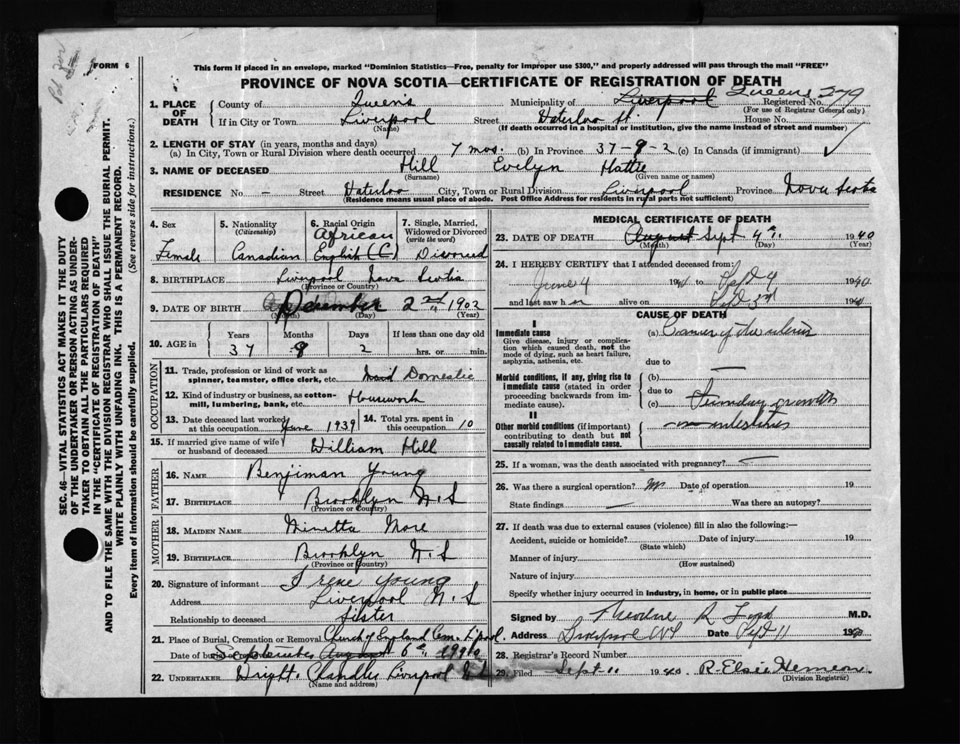 FORM 6
This form if placed in an envelope, marked "Dominion Statistics—Free, penalty for improper use $300," and properly addressed will pass through the mail "FREE"
PROVINCE OF NOVA SCOTIA—CERTIFICATE OF REGISTRATION OF DEATH
1. PLACE OF DEATH
County of Queens Municipality of Liverpool Queens Registered No. 279
(For use of Registrar General only)
If in City or Town Liverpool Street Waterloo St. House No.
(Name) (If death occurred in a hospital or institution, give the name instead of street and number)
2. LENGTH OF STAY (in years, months and days)
(a) In City, Town or Rural Division where death occurred 7 mos. (b) In Province 37-9-2 (c) In Canada (if immigrant)
3. NAME OF DECEASED Hill Evelyn Hattie
(Surname) (Given name or names)
RESIDENCE No. – Street Waterloo City, Town or Rural Division Liverpool Province Nova Scotia
(Residence means usual place of abode. Post Office Address for residents in rural parts not sufficient)
4. Sex Female
5. Nationality (Citizenship) Canadian
6. Racial Origin African English (C)
7. Single, Married, Widowed or Divorced (write the word) Divorced
8. BIRTHPLACE Liverpool Nova Scotia
(Province or Country)
9. DATE OF BIRTH December 2nd 1902
(Month) (Day) (Year)
10. AGE in Years Months Days If less than one day old
37 9 2 hrs. or min.
OCCUPATION
11. Trade, profession or kind of work as spinner, teamster, office clerk, etc. Maid Domestic
12. Kind of industry or business, as cotton-mill, lumbering, bank, etc. Housework
13. Date deceased last worked at this occupation June 1939 14. Total yrs. spent in this occupation 10
15. If married give name of wife or husband of deceased William Hill
FATHER
16. NAME Benjiman Young
17. BIRTHPLACE Brooklyn N.S
(Province or Country)
MOTHER
18. MAIDEN NAME Minetta More
19. BIRTHPLACE Brooklyn N.S
(Province or Country)
20. Signature of informant Irene Young
Address Liverpool N.S
Relationship to deceased Sister
21. Place of Burial, Cremation or Removal Church of England Cem. L'pool.
Date of burial September August 6th 1940
22. UNDERTAKER Wright. Chandler Liverpool N.S.
(Name and address)
MEDICAL CERTIFICATE OF DEATH
23. DATE OF DEATH August Sept 4th 1940
(Month) (Day) (Year)
24. I HEREBY CERTIFY that I attended deceased from:
June 4 1940 to Sept 4 1940
and last saw her alive on Sept 3rd 1940
CAUSE OF DEATH
I
Immediate cause
Give disease, injury or complication which caused death, not the mode of dying, such as heart failure, asphyxia, asthenia, etc.
(a) Cancer of the uterus
due to —
Morbid conditions, if any, giving rise to immediate cause (stated in order proceeding backwards from immediate cause).
(b)
due to
(c) Secondary growths
II
Other morbid conditions (if important) contributing to death but not causally related to immediate cause.
in intestines
25. If a woman, was the death associated with pregnancy? —
26. Was there a surgical operation? No Date of operation 19
State findings — Was there an autopsy?
27. If death was due to external causes (violence) fill in also the following:—
Accident, suicide or homicide? Date of injury 19
(State which)
Manner of injury
(How sustained)
Nature of injury
Specify whether injury occurred in industry, in home, or in public place
Signed by Theodore R. Ford M.D.
Address Liverpool NS Date Sept 11 1940
28. Registrar's Record Number
29. Filed Sept 11 1940 R. Elsie Hemeon
(Division Registrar)
SEC. 46—VITAL STATISTICS ACT MAKES IT THE DUTY
OF THE UNDERTAKER OR PERSON ACTING AS UNDERTAKER TO OBTAIN ALL THE PARTICULARS REQUIRED
IN THE "CERTIFICATE OF REGISTRATION OF DEATH"
AND TO FILE THE SAME WITH THE DIVISION REGISTRAR WHO SHALL ISSUE THE BURIAL PERMIT.
WRITE PLAINLY WITH UNFADING INK. THIS IS A PERMANENT RECORD.
Every item of information should be carefully supplied. (See reverse side for instructions.)